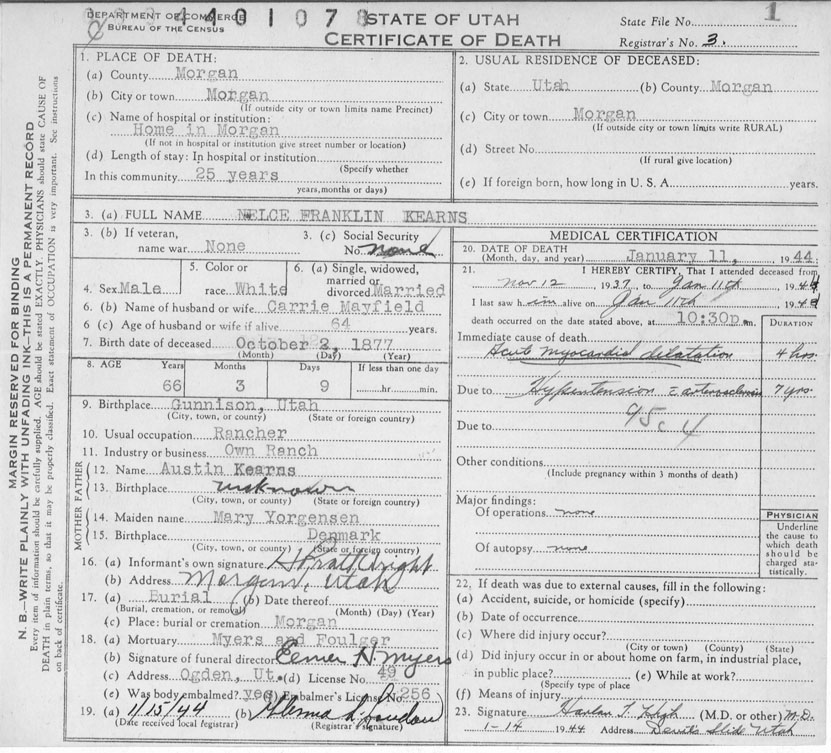 DEPARTMENT OF COMMERCE
BUREAU OF THE CENSUS
4401078
STATE OF UTAH
CERTIFICATE OF DEATH
State File No. 1
Registrar's No. 3.
MARGIN RESERVED FOR BINDING
N. B.—WRITE PLAINLY WITH UNFADING INK—THIS IS A PERMANENT RECORD
Every item of information should be carefully supplied. AGE should be stated EXACTLY. PHYSICIANS should state CAUSE OF
DEATH in plain terms, so that it may be properly classified. Exact statement of OCCUPATION is very important. See instructions
on back of certificate.
1. PLACE OF DEATH:
(a) County Morgan
(b) City or town Morgan
(If outside city or town limits name Precinct)
(c) Name of hospital or institution:
Home in Morgan
(If not in hospital or institution give street number or location)
(d) Length of stay: In hospital or institution
(Specify whether
In this community 25 years
years, months or days)
2. USUAL RESIDENCE OF DECEASED:
(a) State Utah (b) County Morgan
(c) City or town Morgan
(If outside city or town limits write RURAL)
(d) Street No.
(If rural give location)
(e) If foreign born, how long in U. S. A. years.
3. (a) FULL NAME NELCE FRANKLIN KEARNS
3. (b) If veteran, name war None
3. (c) Social Security No. none
4. Sex Male
5. Color or race White
6. (a) Single, widowed, married or divorced Married
6. (b) Name of husband or wife Carrie Mayfield
6 (c) Age of husband or wife if alive 64 years.
7. Birth date of deceased October 2, 1877
(Month) (Day) (Year)
8. AGE Years Months Days If less than one day
66 3 9 hr. min.
9. Birthplace Gunnison, Utah
(City, town, or county) (State or foreign country)
10. Usual occupation Rancher
11. Industry or business Own Ranch
FATHER
12. Name Austin Kearns
13. Birthplace unknown
(City, town, or county) (State or foreign country)
MOTHER
14. Maiden name Mary Yorgensen
15. Birthplace Denmark
(City, town, or county) (State or foreign country)
16. (a) Informant's own signature
(b) Address Morgan, Utah
17. (a) Burial (b) Date thereof
(Burial, cremation, or removal) (Month) (Day) (Year)
(c) Place: burial or cremation Morgan
18. (a) Mortuary Myers and Foulger
(b) Signature of funeral director Elmer H. Myers
(c) Address Ogden, Ut. (d) License No. 49
(e) Was body embalmed? yes Embalmer's License No. 256
19. (a) 1/15/44 (b)
(Date received local registrar) (Registrar's signature)
MEDICAL CERTIFICATION
20. DATE OF DEATH January 11, 1944
(Month, day, and year)
21. I HEREBY CERTIFY, That I attended deceased from
Nov 12 1937 to Jan 11th 1944
I last saw him alive on Jan 11th 194
death occurred on the date stated above, at 10:30p.m.
DURATION
Immediate cause of death
Acute myocardial dilatation 4 hrs.
Due to Hypertension 7 yrs.
95c 4
Due to
Other conditions
(Include pregnancy within 3 months of death)
Major findings:
Of operations none
Of autopsy none
PHYSICIAN
Underline
the cause to
which death
should be
charged sta-
tistically.
22. If death was due to external causes, fill in the following:
(a) Accident, suicide, or homicide (specify)
(b) Date of occurrence
(c) Where did injury occur?
(City or town) (County) (State)
(d) Did injury occur in or about home on farm, in industrial place,
in public place? (e) While at work?
(Specify type of place
(f) Means of injury
23. Signature Harlan T. High (M.D. or other) M.D.
1-14 1944 Address Devil's Slide Utah